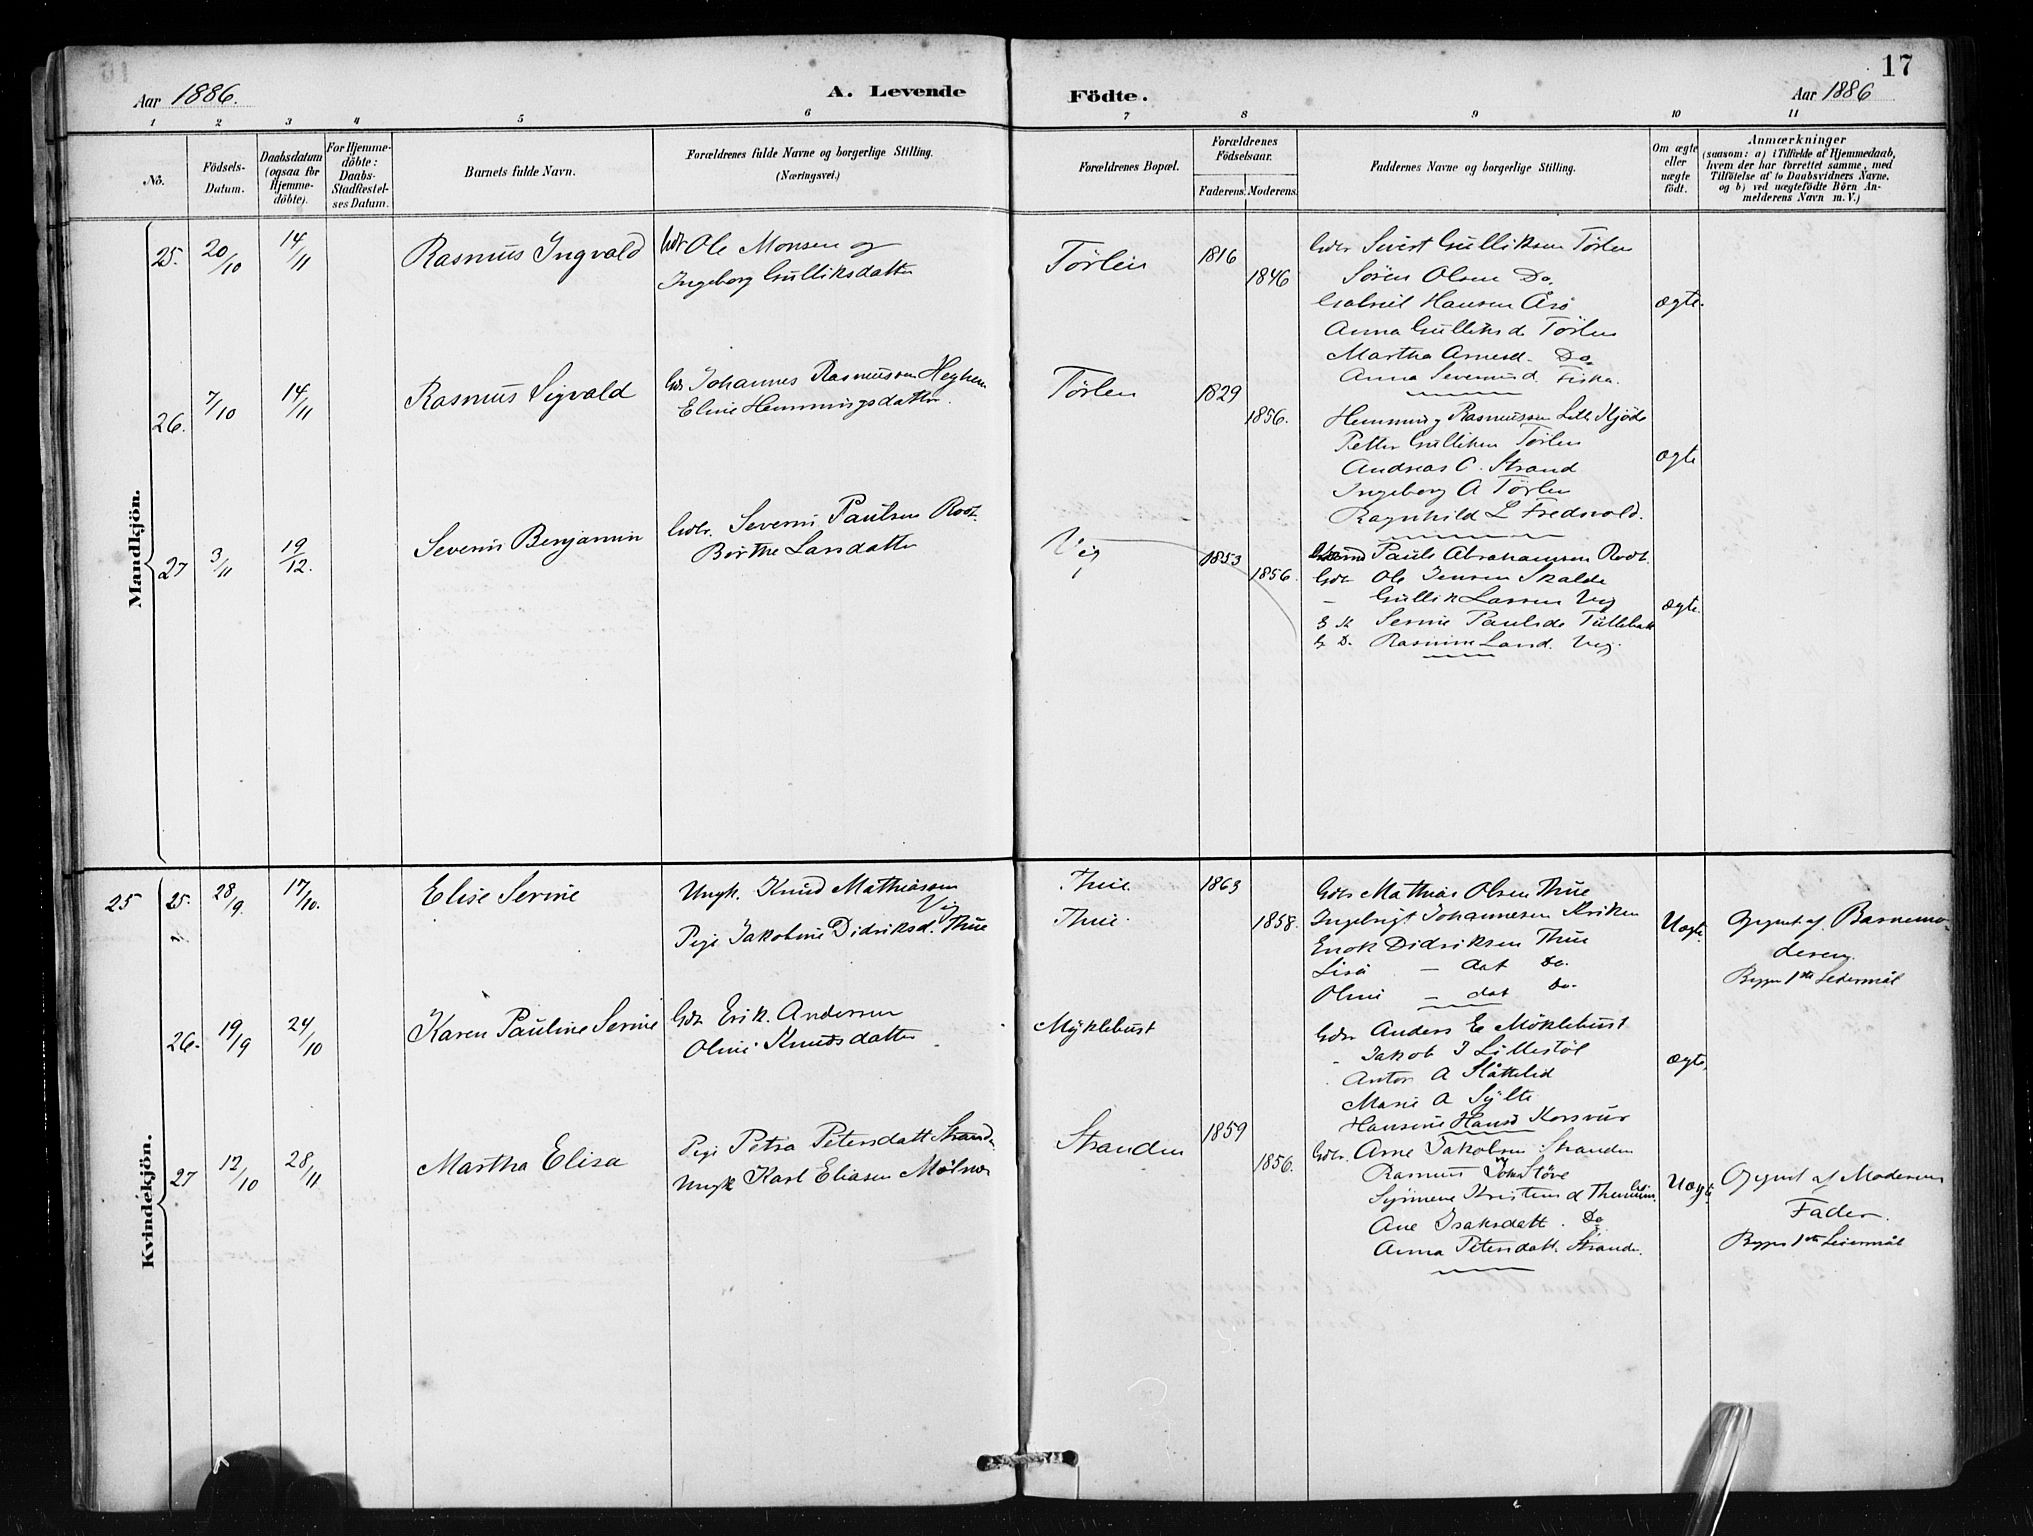 17
Aar 1886.
A. Levende
Födte.
Aar 1886
1 2 3 4 5 6 7 8 9 10 11
No.
Födsels-
Datum.
Daabsdatum
(ogsaa for
Hjemme-
döbte).
For Hjemme-
döbte:
Daabs-
Stadfæstel-
ses Datum.
Barnets fulde Navn.
Forældrenes fulde Navne og borgerlige Stilling.
(Næringsvei.)
Forældrenes Bopæl.
Forældrenes
Födselsaar.
Faderens. Moderens.
Faddernes Navne og borgerlige Stilling.
Om ægte
eller
uægte
födt.
Anmærkninger
(saasom: a) i Tilfælde af Hjemmedaab,
hvem der har forrettet samme, med
Tilföielse af to Daabsvidners Navne,
og b) ved uægtefödte Börn An-
melderens Navn m. V.)
Mandkjön.
25. 20/10 14/11 Rasmus Ingvald
Gbr Ole Monsen og
Ingeborg Gulliksdatter
Tørlen 1816 1846
Gdbr Sivert Gulliksen Tørlen
Søren Olsen Do.
Gabriel Hansen Årø
Anna Gulliksd Tørlen
Martha Arnesd. Do
Anna Severinsd. Fiska.
ægte.
26. 7/10 14/11 Rasmus Sigvald
Gdr Johannes Rasmussen
Eline Hemmingsdatter.
Tørlen 1829 1856.
Hemming Rasmussen
Petter Gulliksen Tørlen
Andreas O. Strand
Ingeborg A Tørlen
Ragnhild L Fredsvold.
ægte
27 3/11 19/12. Severin Benjamin
Gdbr. Severin Paulsen Rodt.
Birthe Larsdatter
Vig 1853 1856.
Paul Abrahamsen Rodt.
Gdr Ole Jensen Skalde
- Gullik Larssen Vig
G K Serine Paulsd
G D. Rasmine Larsd. Vig.
ægte.
Kvindekjön.
25 25. 28/9. 17/10. Elise Serine
Ungk. Knud Mathiassen
Vig
Pige Jakobine Didriksd. Thue
Thue 1863
Thue 1858.
Gdr Mathias Olsen Thue
Ingebrigt Johannesen Kriken
Enok Didriksen Thue
Lisa - dat Do.
Oline - dat Do.
Uægte.
Opgivet af Barnemo-
deren.
Begges 1ste Leiermål
26. 19/9 24/10 Karen Pauline Serine
Gdr Erik. Andersen
Oline Knudsdatter
Myklebust
Gdr Anders E Möklebust
Jakob J Lillestöl
Anton A Slåttelid
Marie A Sylte
Hansine Hansd
ægte,
27 12/10 28/11 Martha Elisa
Pige Petra Petersdatt Strand.
Ungk Karl Eliasen
Stranden 1859 1856.
Gdbr. Arne Jakobsen Stranden
Rasmus Støve
Kristensd
Ane Isaksdatt. Do
Anna Petersdatt. Strande.
Uægte
Opgivet af Moderens
Fader.
Begges 1ste Leiermål